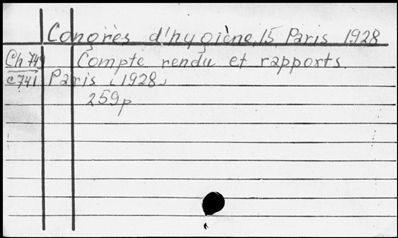 Congrès d'hygiène, 15, Paris 1928
Ch 749 Compte rendu et rapports.
c741 Paris (1928)
259p